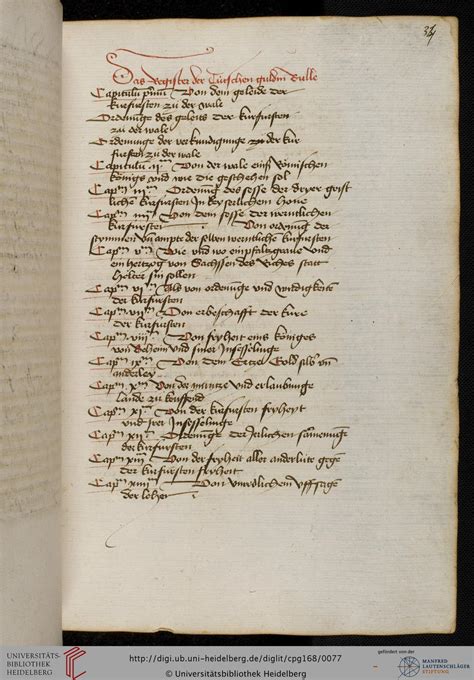 34
Das Register der Tutschen guldin Bulle
Capitulu primu Von dem geleide der
kurfursten zu der wale
Ordenunge des geleits der kurfursten
zu der wale
Ordenunge der verkundigunge zu der kur
fursten zu der wale
Capitulu ij Von der wale eins Romischen
konigs vnd wie die geschehen sol
Capm iijm Ordenung des sesse der dryer geist
lichen kurfursten Jn keyserlichem houe
Capm iiijm Von dem sesse der werntlichen
kurfursten Von ordnung der
stymmen von ampte der selben werntliche kurfursten
Capm vm Wie vnd wo ein pfaltzgraue vnd
ein hertzog von Sachssen des Riches statt
helter sin sollen
Capm vim Als von ordenunge vnd wirdigkeit
der kurfursten
Capm vijm Von erbeschafft der kure
der kurfursten
Capm viijm Von fryheit eins koniges
von Behem vnd siner Jnsesselinge
Capm ixm Von dem Ertze Gold silb vn
anderley
Capm xm Von der muntze vnd erlaubunge
lande zu kouffend
Capm xjm Von der kurfursten fryheyt
vnd irer Jnsesselinge
Capm xijm Ordenunge der Jerlichen samenunge
der kurfursten
Capm xiijm Von der fryheit aller ander lute gege
der kurfursten fryheit
Capm xiiijm Von vnredlichem vffsage
der lehen
UNIVERSITÄTS-
BIBLIOTHEK
HEIDELBERG
http://digi.ub.uni-heidelberg.de/diglit/cpg168/0077
© Universitätsbibliothek Heidelberg
gefördert von der
MANFRED
LAUTENSCHLÄGER
STIFTUNG